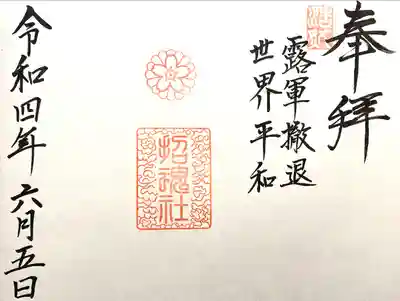 奉拝
露軍撤退
世界平和
招魂社
令和四年 六月五日